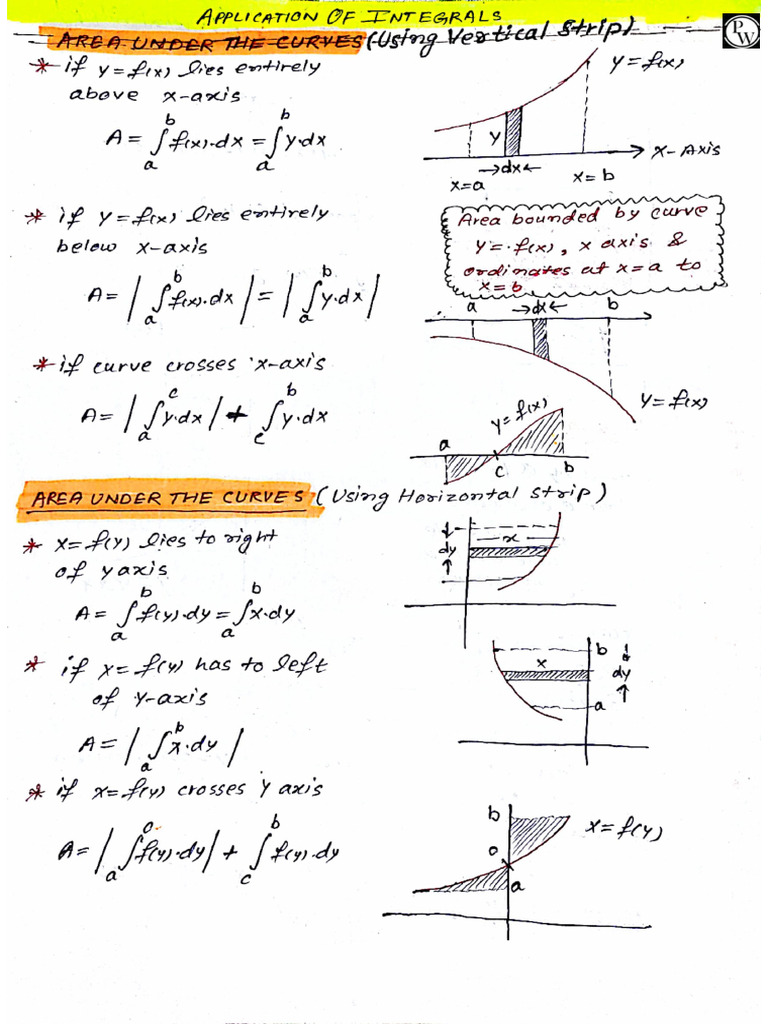 APPLICATION OF INTEGRALS
AREA UNDER THE CURVES (Using Vertical Strip)
PW
* if y=f(x) lies entirely
above x-axis
A = ∫_a^b f(x)·dx = ∫_a^b y·dx
y=f(x)
y
→dx←
x-Axis
x=a
x=b
* if y=f(x) lies entirely
below x-axis
A = | ∫_a^b f(x)·dx | = | ∫_a^b y·dx |
Area bounded by curve
y=f(x), x axis &
ordinates at x=a to
x=b
a →dx← b
y=f(x)
* if curve crosses x-axis
A = | ∫_a^c y·dx | + ∫_c^b y·dx
y=f(x)
a
c
b
AREA UNDER THE CURVES (Using Horizontal strip)
* x=f(y) lies to right
of y axis
A = ∫_a^b f(y)·dy = ∫_a^b x·dy
x
dy
* if x=f(y) has to left
of y-axis
A = | ∫_a^b x·dy |
b
x
dy
a
* if x=f(y) crosses y axis
A = | ∫_a^0 f(y)·dy | + ∫_c^b f(y)·dy
b
x=f(y)
0
a